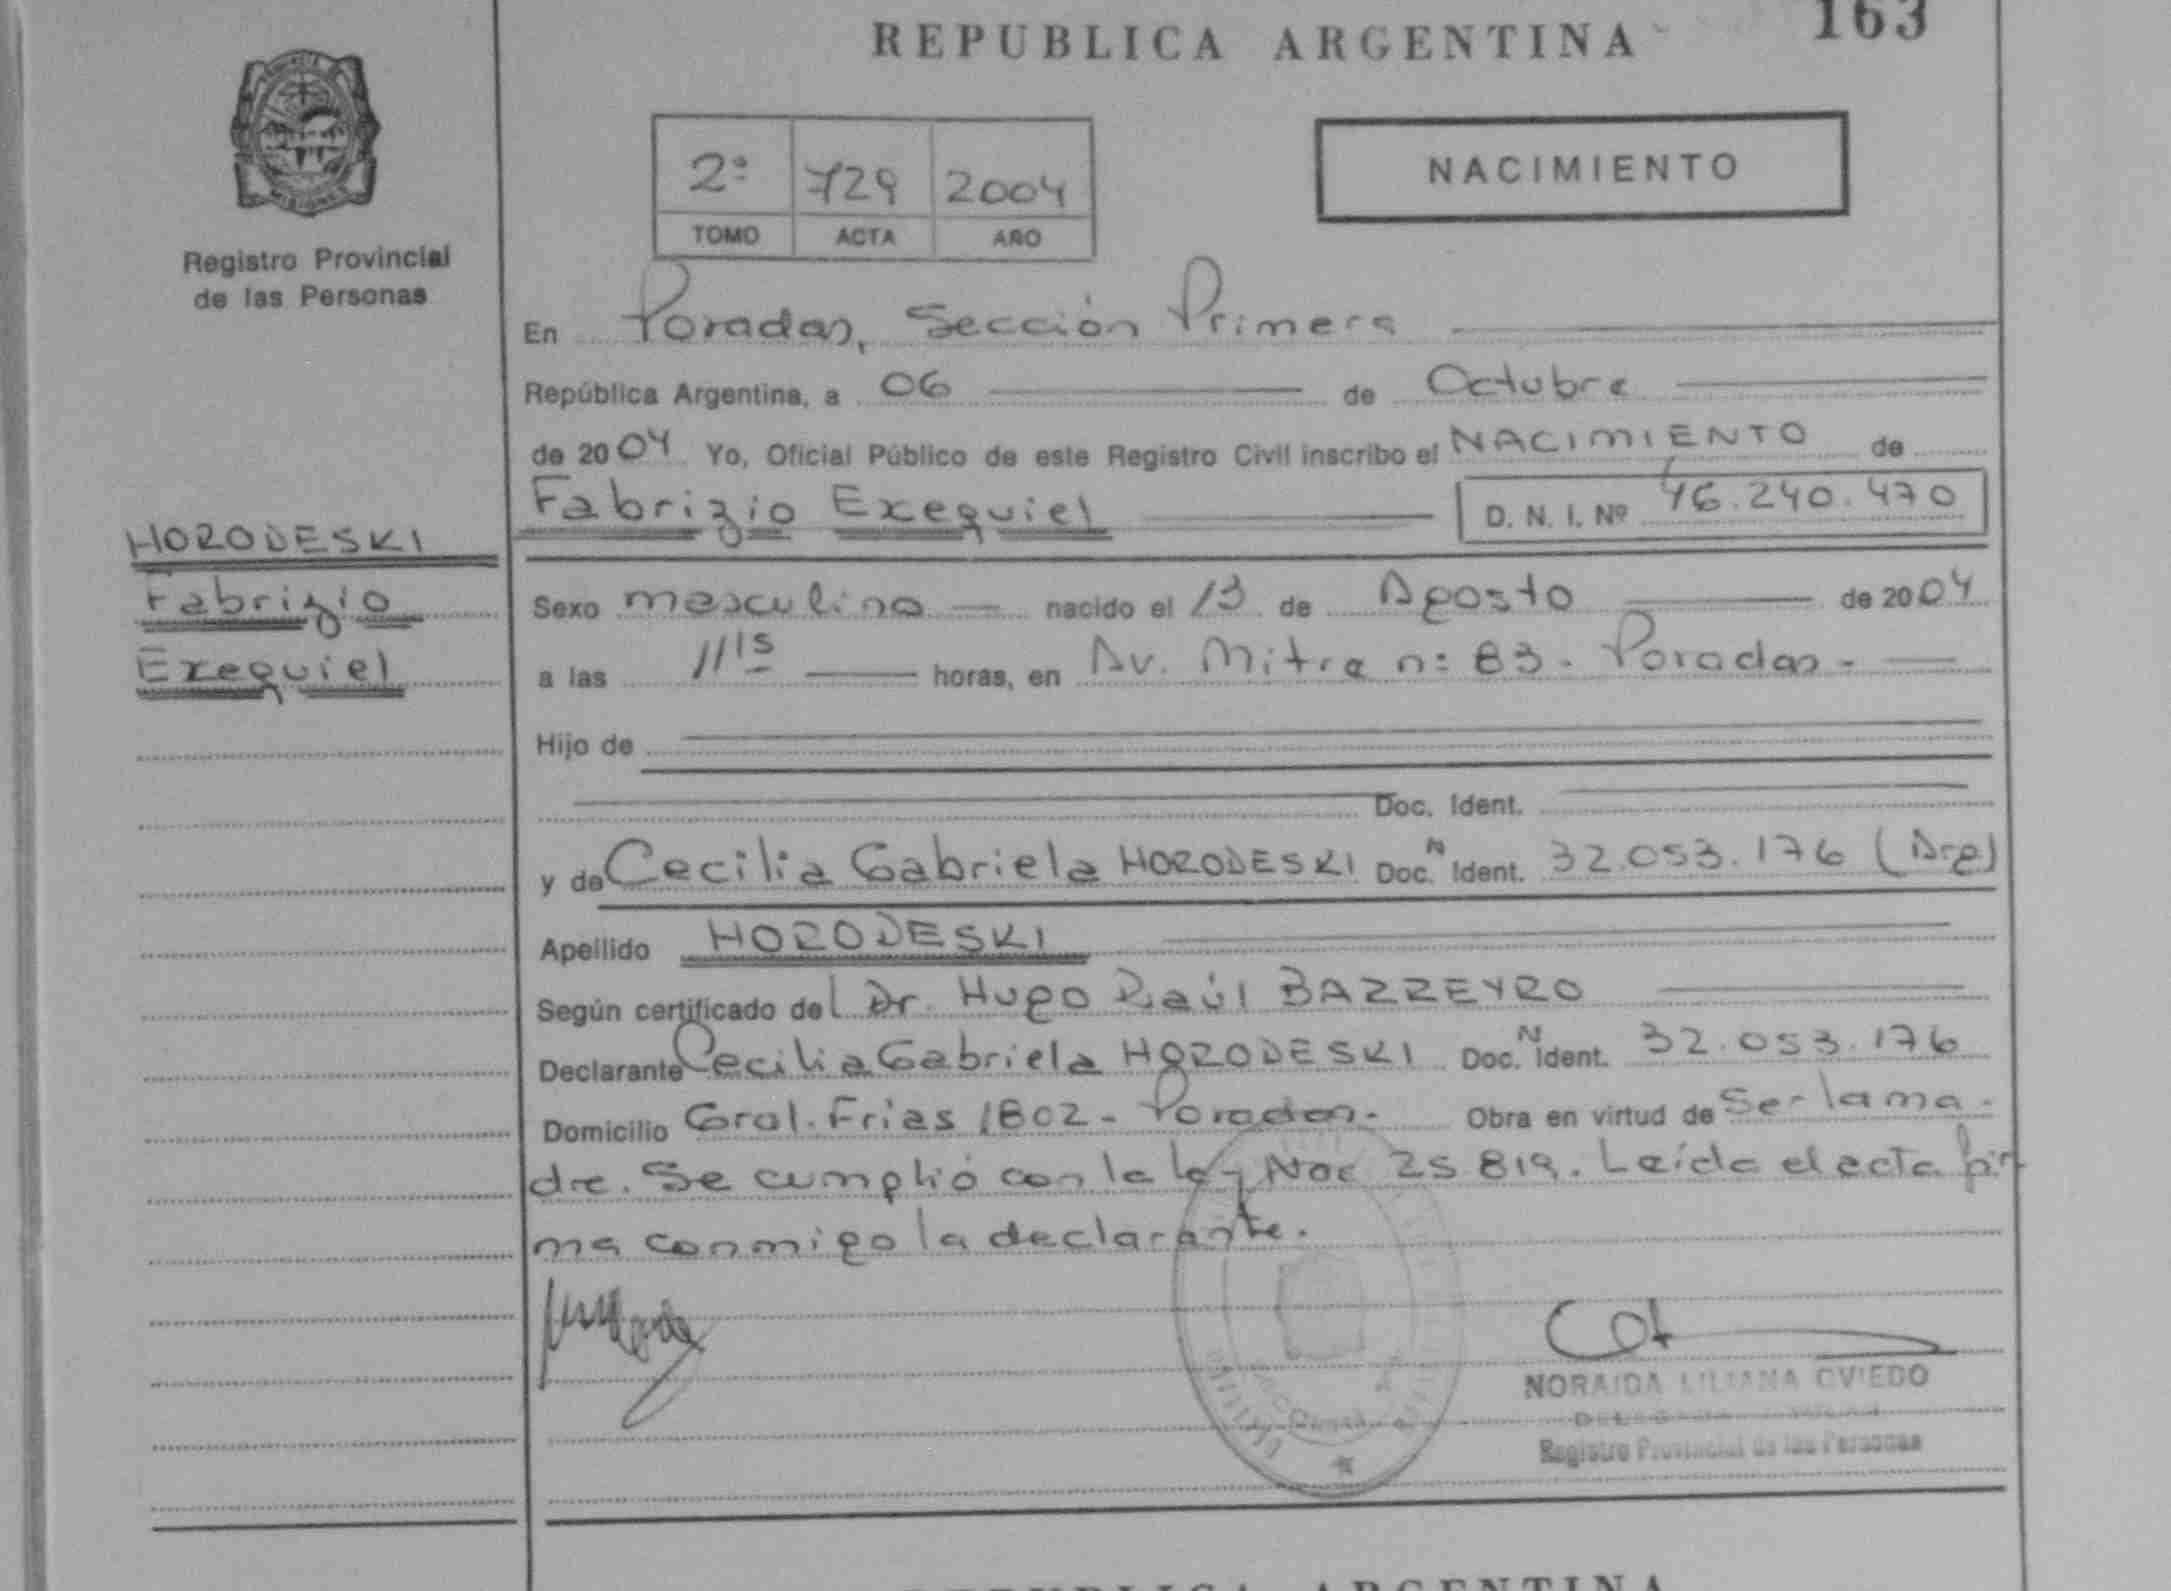 REPUBLICA ARGENTINA
163
Registro Provincial
de las Personas
2º 729 2004
TOMO ACTA AÑO
NACIMIENTO
En Posadas, Sección Primera
República Argentina, a 06 de Octubre
de 2004 Yo, Oficial Público de este Registro Civil inscribo el NACIMIENTO de
Fabrizio Exequiel
D. N. I. Nº 46.240.470
HORODESKI
Fabrizio
Exequiel
Sexo masculino nacido el 13 de Agosto de 2004
a las 11 15 horas, en Av. Mitre nº 83 - Posadas -
Hijo de
Doc. Ident.
y de Cecilia Gabriela HORODESKI Doc. N Ident. 32.053.176 (Arg)
Apellido HORODESKI
Según certificado del Dr. Hugo Raúl BARREYRO
Declarante Cecilia Gabriela HORODESKI Doc. N Ident. 32.053.176
Domicilio Gral. Frias 1802 - Posadas. Obra en virtud de Ser la ma-
dre. Se cumplió con la ley Nac 25819. Leída el acta fir
ma conmigo la declarante.
NORAIDA LILIANA OVIEDO
Registro Provincial de las Personas
REPUBLICA ARGENTINA